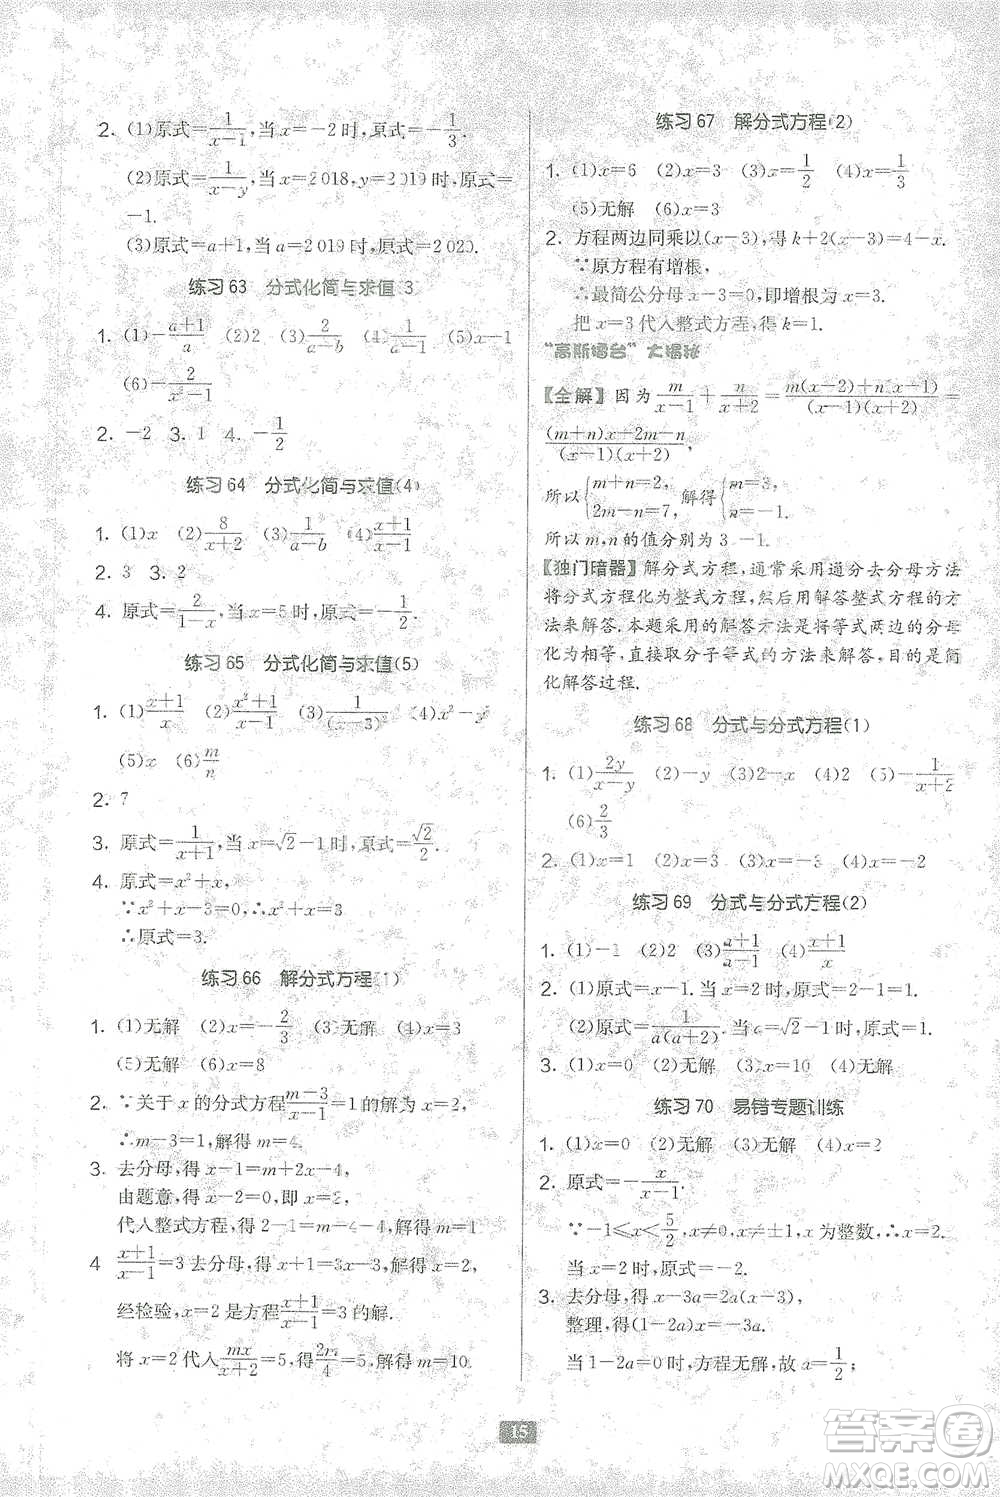 2. (1)原式=1/(x−1),当 x=−2 时,原式=−1/3.
(2)原式=1/(x−y),当 x=2 018,y=2 019 时,原式=
−1.
(3)原式=a+1,当 a=2 019 时,原式=2 020.
练习 63 分式化简与求值(3)
1. (1)−(a+1)/a (2)2 (3)2/(a−b) (4)1/(a−2) (5)x−1
(6)−2/(x²−1)
2. −2 3. 1 4. −1/2
练习 64 分式化简与求值(4)
1. (1)x (2)8/(x+2) (3)1/(a−b) (4)(x+1)/(x−1)
2. 3 3. 2
4. 原式=2/(1−x),当 x=5 时,原式=−1/2.
练习 65 分式化简与求值(5)
1. (1)(x+1)/x (2)(x²+1)/(x−1) (3)1/(x−3)² (4)x²−x
(5)x (6)m/n
2. 7
3. 原式=1/(x+1),当 x=√2−1 时,原式=√2/2.
4. 原式=x²+x,
∵x²+x−3=0,∴x²+x=3
∴原式=3.
练习 66 解分式方程(1)
1. (1)无解 (2)x=−2/3 (3)无解 (4)x=3
(5)无解 (6)x=8
2. ∵关于 x 的分式方程(m−3)/(x−1)=1 的解为 x=2,
∴m−3=1,解得 m=4.
3. 去分母,得 x−1=m+2x−4,
由题意,得 x−2=0,即 x=2,
代入整式方程,得 2−1=m+4−4,解得 m=1.
4 (x+1)/(x−1)=3 去分母,得 x+1=3x−3,解得 x=2,
经检验,x=2 是方程(x+1)/(x−1)=3 的解.
将 x=2 代入mx/(x+2)=5,得2m/4=5,解得 m=10.
练习 67 解分式方程(2)
1. (1)x=6 (2)x=3 (3)x=1/2 (4)x=1/3
(5)无解 (6)x=3
2. 方程两边同乘以(x−3),得 k+2(x−3)=4−x.
∵原方程有增根,
∴最简公分母 x−3=0,即增根为 x=3.
把 x=3 代入整式方程,得 k=1.
“高斯擂台”大揭秘
【全解】因为m/(x−1)+n/(x+2)=(m(x+2)+n(x−1))/((x−1)(x+2))=
((m+n)x+2m−n)/((x−1)(x+2)),
所以{m+n=2, 2m−n=7,解得{m=3, n=−1.
所以 m,n 的值分别为 3,−1.
【独门暗器】解分式方程,通常采用通分去分母方法
将分式方程化为整式方程,然后用解答整式方程的方
法来解答.本题采用的解答方法是将等式两边的分母
化为相等,直接取分子等式的方法来解答,目的是简
化解答过程.
练习 68 分式与分式方程(1)
1. (1)2y/(x−y) (2)−y (3)−2 (4)2 (5)−1/(x+2)
(6)2/3
2. (1)x=1 (2)x=4 (3)x=−3 (4)x=−2
练习 69 分式与分式方程(2)
1. (1)−1 (2)2 (3)(a+1)/(a−1) (4)(x+1)/x
2. (1)原式=x−1.当 x=2 时,原式=2−1=1.
(2)原式=1/(a(a+2)).当 a=√2−1 时,原式=1.
3. (1)x=0 (2)无解 (3)x=10 (4)无解
练习 70 易错专题训练
1. (1)x=0 (2)无解 (3)无解 (4)x=2
2. 原式=−x/(x−1).
∵−1⩽x<5/2,x≠0,x≠±1,x 为整数,∴x=2.
当 x=2 时,原式=−2.
3. 去分母,得 x−3a=2a(x−3),
整理,得(1−2a)x=−3a.
当 1−2a=0 时,方程无解,故 a=1/2;
15
答案卷
MXQE.COM